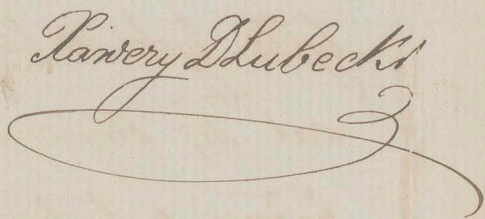 Xawery DLubecki